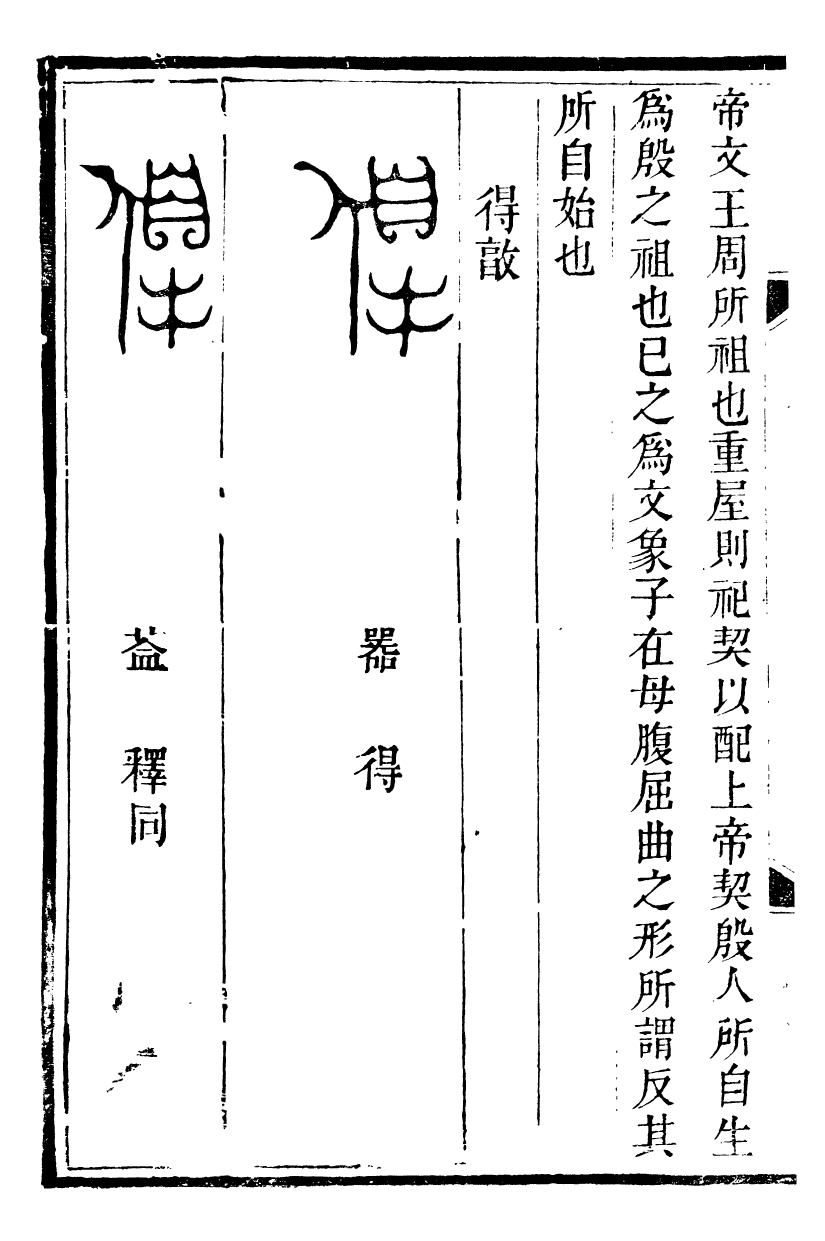 帝文王周所祖也重屋則祀契以配上帝契殷人所自生
爲殷之祖也巳之爲文象子在母腹屈曲之形所謂反其
所自始也
得敔
器 得
葢 釋同